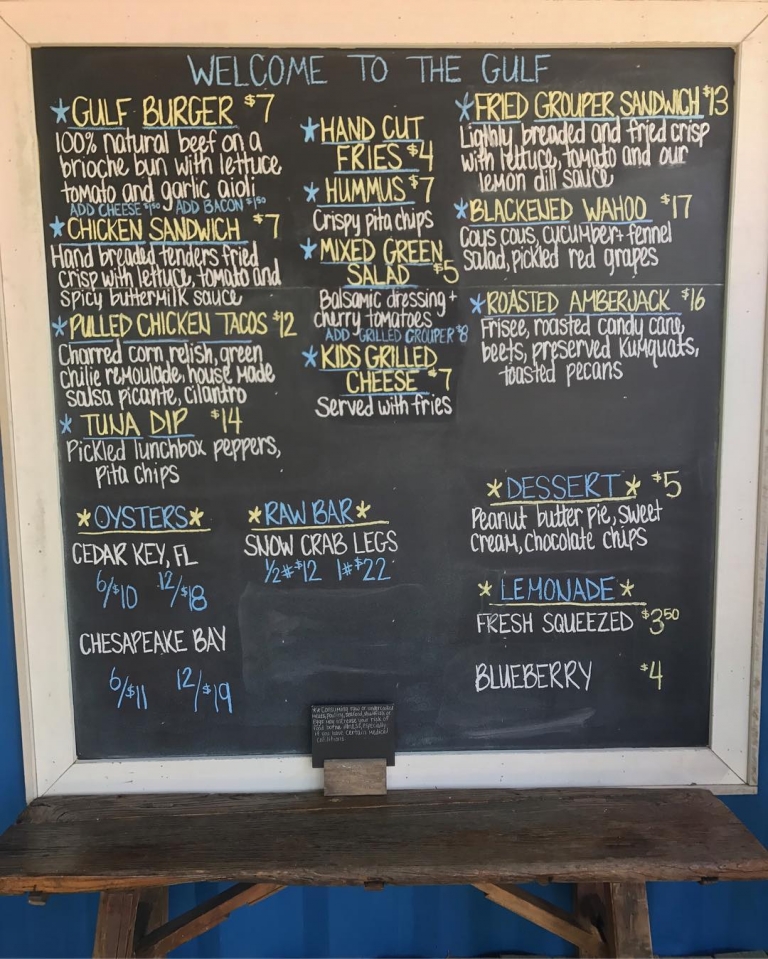 WELCOME TO THE GULF
*GULF BURGER $7
100% natural beef on a
brioche bun with lettuce
tomato and garlic aioli
ADD CHEESE $1.50 ADD BACON $1.50
*CHICKEN SANDWICH $7
Hand breaded tenders fried
crisp with lettuce, tomato and
spicy buttermilk sauce
*PULLED CHICKEN TACOS $12
Charred corn relish, green
chilie remoulade, house made
salsa picante, cilantro
*TUNA DIP $14
Pickled lunchbox peppers,
Pita chips
*HAND CUT
FRIES $4
*HUMMUS $7
Crispy pita chips
*MIXED GREEN
SALAD $5
Balsamic dressing +
cherry tomatoes
ADD GRILLED GROUPER $8
*KIDS GRILLED
CHEESE $7
Served with fries
*FRIED GROUPER SANDWICH $13
Lighly breaded and fried crisp
with lettuce, tomato and our
lemon dill sauce
*BLACKENED WAHOO $17
Cous cous, cucumber + fennel
salad, pickled red grapes
*ROASTED AMBERJACK $16
Frisee, roasted candy cane,
beets, preserved kumquats,
toasted pecans
*OYSTERS*
CEDAR KEY, FL
6/$10 12/$18
CHESAPEAKE BAY
6/$11 12/$19
*RAW BAR*
SNOW CRAB LEGS
1/2# $12 1# $22
*DESSERT* $5
Peanut butter pie, sweet
cream, chocolate chips
*LEMONADE*
FRESH SQUEEZED $3.50
BLUEBERRY $4